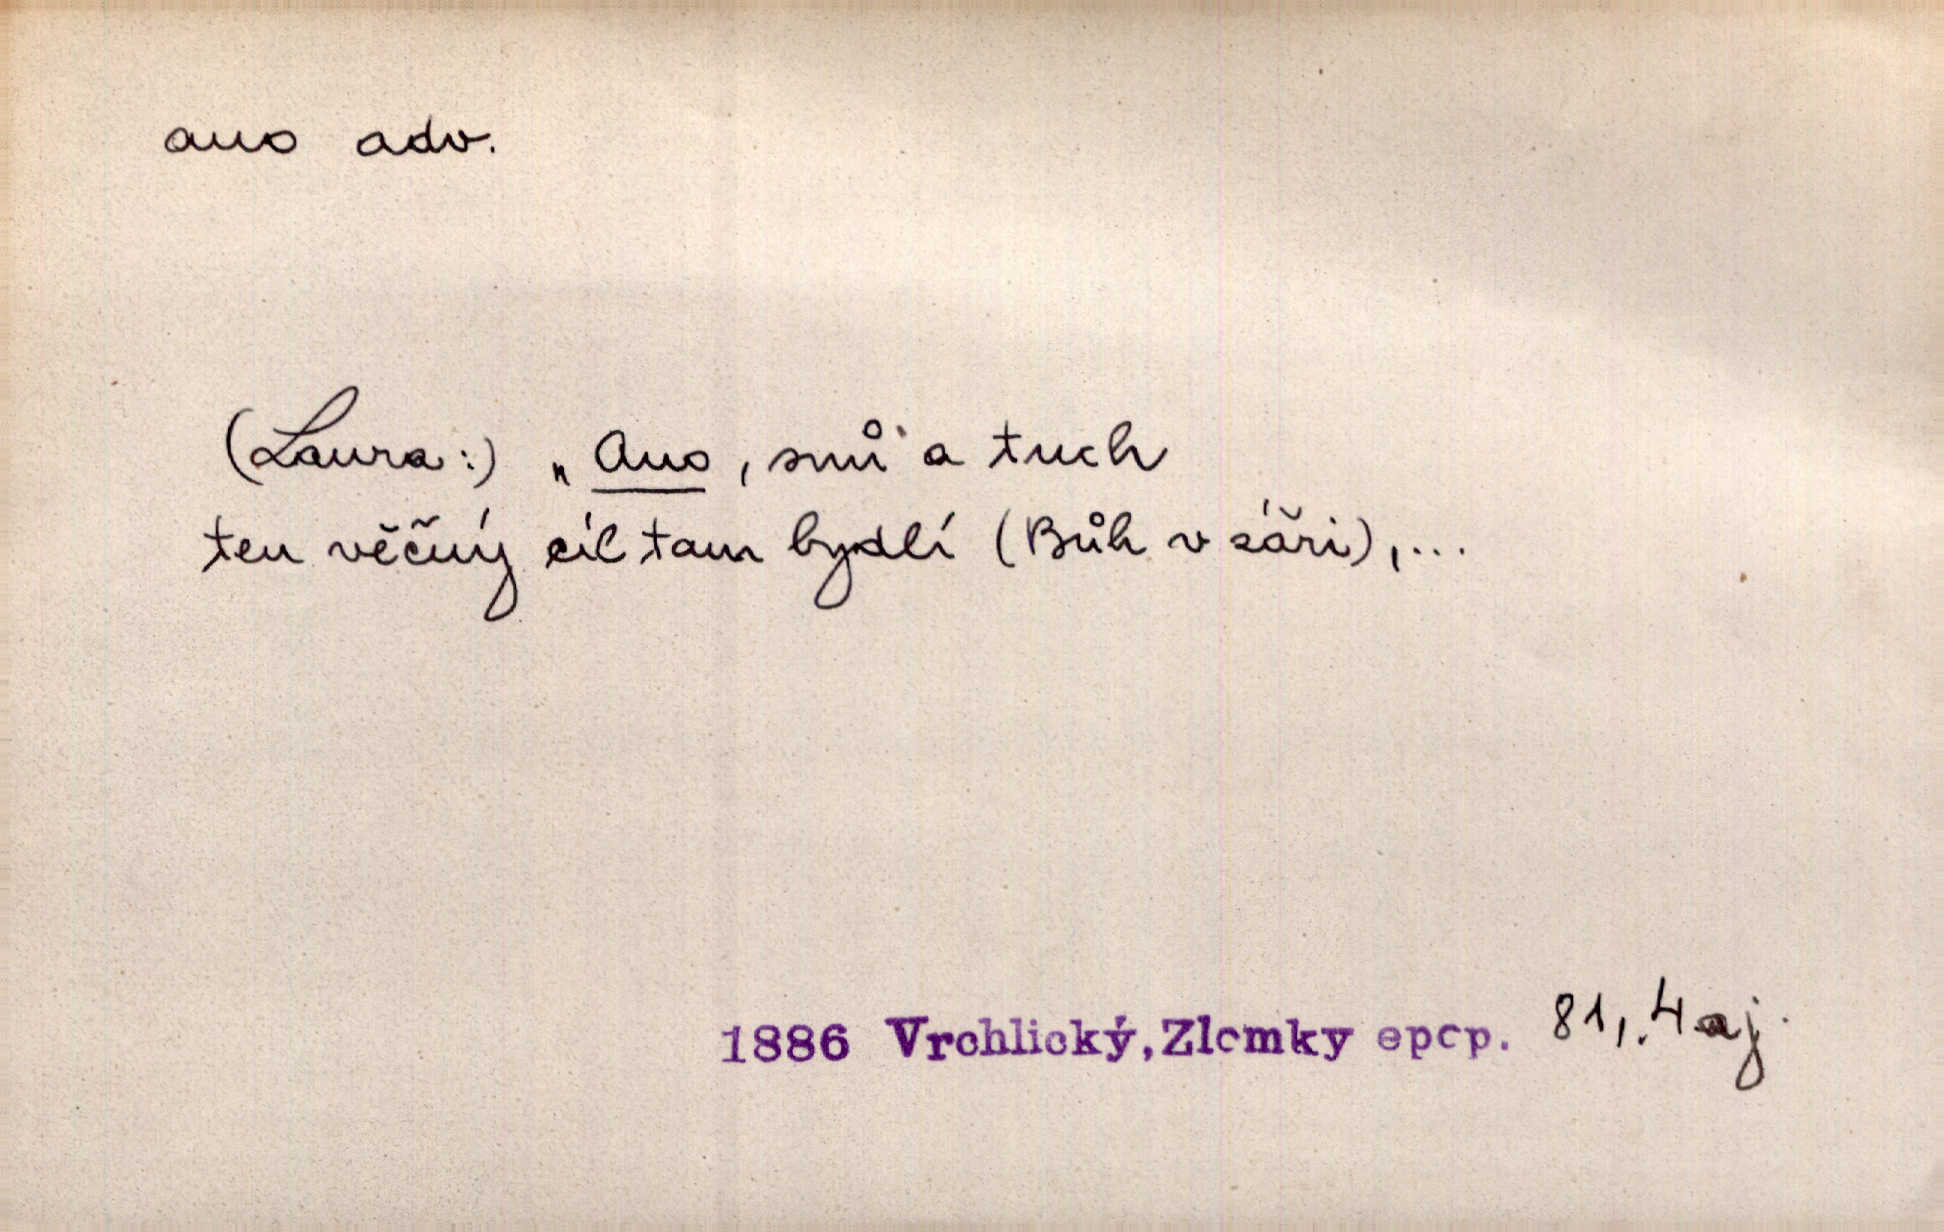 ano adv.
(Laura:) „Ano, snů a tuch
ten věčný cíl tam bydlí (Bůh v záři),...
1886 Vrchlický, Zlomky epop. 81, 4 aj.